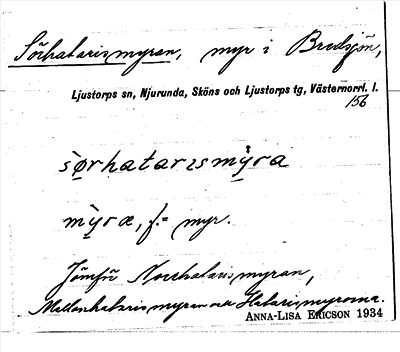 Sörhatarismyran, myr i Bredsjön,
Ljustorps sn, Njurunda, Sköns och Ljustorps tg, Västernorrl. l.
156
sørhatarismỳra
mỳra, f. = myr.
Jämför Norrhatarismyran,
Mellanhatarismyran och Hatarismyrorna.
ANNA-LISA ERICSON 1934